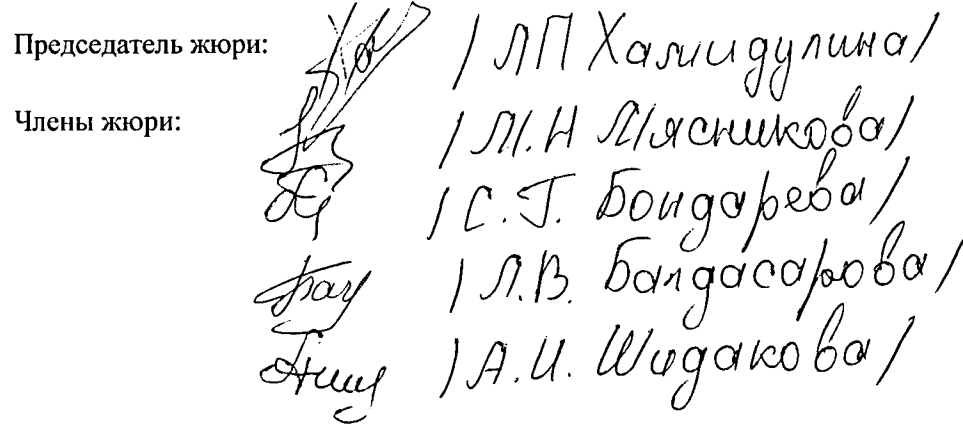 Председатель жюри: /ЛП Хамидулина/
Члены жюри: /М.Н Мясникова/
/С.Г. Бондарева/
/Л.В. Балдасарова/
/А.И. Шидакова/